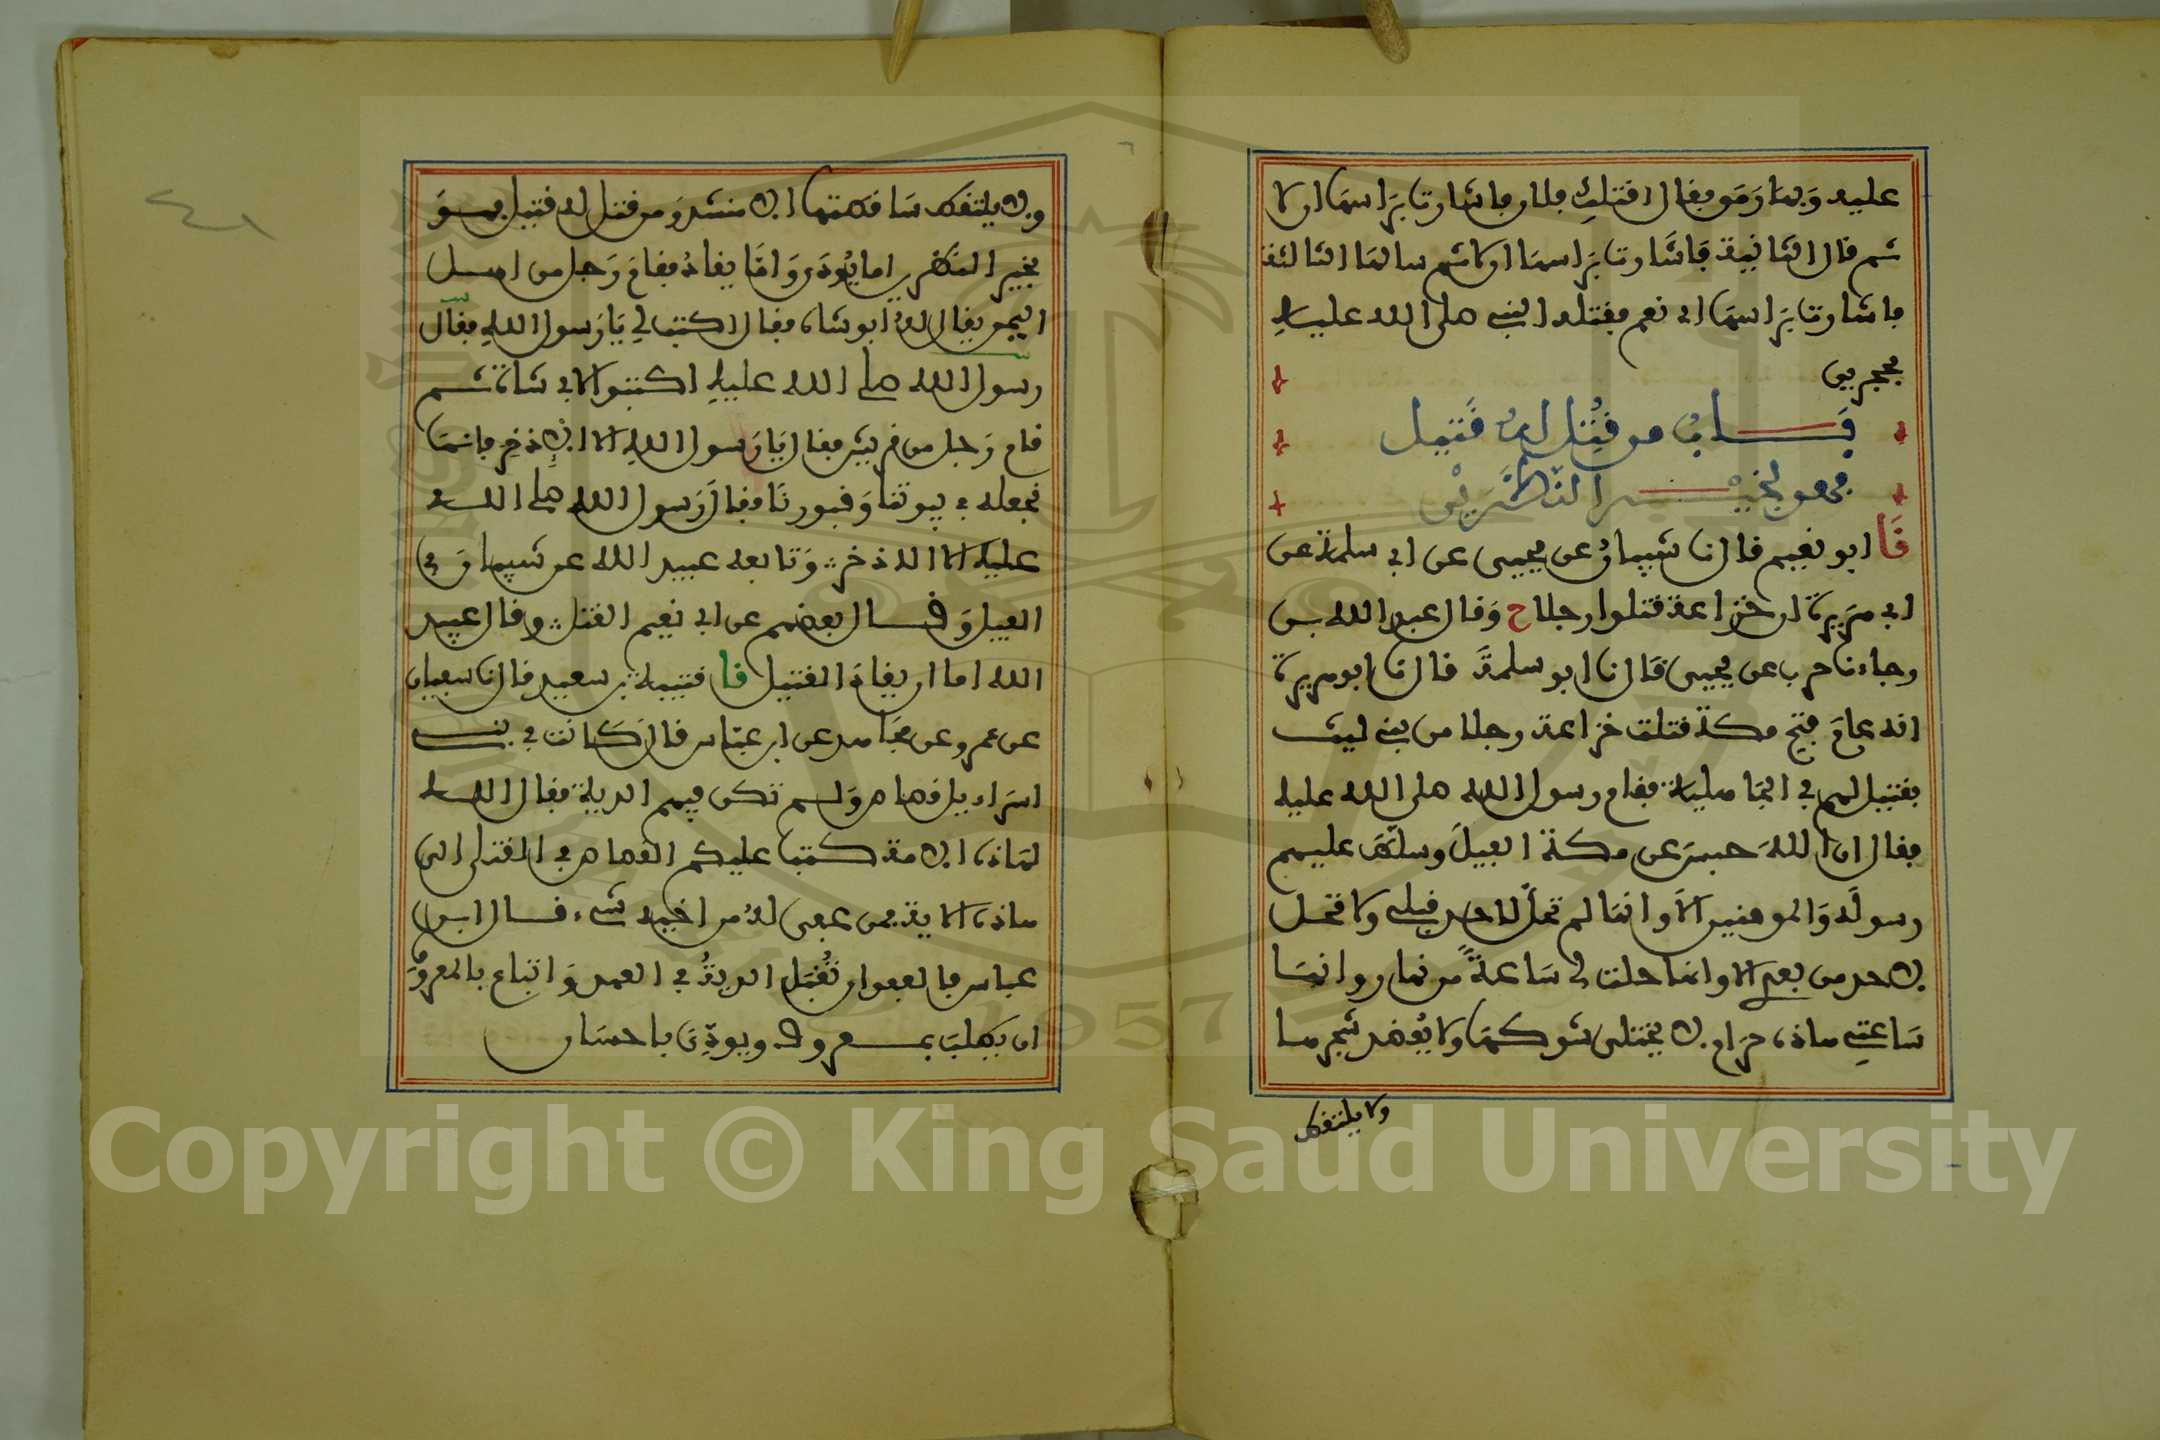 عليه وبها رمق فقال اقتلك فلان فاشارت براسها ان لا
ثم قال الثانية فاشارت براسها ان لا ثم سالها الثالثة
فاشارت براسها اي نعم فقتله النبي صلى الله عليه
بحجرين
باب من قتل له قتيل
فهو بخير النظرين
نا ابو نعيم قال نا شيبان عن يحيى عن ابي سلمة عن
ابي هريرة ان خزاعة قتلوا رجلا ح وقال عبد الله بن
رجاء نا حرب عن يحيى قال نا ابو سلمة قال نا ابو هريرة
انه عام فتح مكة قتلت خزاعة رجلا من بني ليث
بقتيل لهم في الجاهلية فقام رسول الله صلى الله عليه
فقال ان الله حبس عن مكة الفيل وسلط عليهم
رسوله والمومنين الا وانها لم تحل لاحد قبلي ولا تحل
لاحد من بعدي الا وانما احلت لي ساعة من نهار وانها
ساعتي هاذه حرام لا يختلى شوكها ولا يعضد شجرها
ولا يلتقط
ولا يلتقط ساقطتها الا منشد ومن قتل له قتيل فهو
بخير النظرين اما يودى واما يقاد فقام رجل من اهل
اليمن يقال له ابو شاه فقال اكتب لي يا رسول الله فقال
رسول الله صلى الله عليه اكتبوا لابي شاة ثم
قام رجل من قريش فقال يا رسول الله الا الاذخر فانما
نجعله في بيوتنا وقبورنا فقال رسول الله صلى الله
عليه الا الاذخر وتابعه عبيد الله عن شيبان في
الفيل وقال بعضهم عن ابي نعيم القتل وقال عبيد
الله اما ان يقاد القتيل نا قتيبة بن سعيد قال نا سفيان
عن عمرو عن مجاهد عن ابن عباس قال كانت في بني
اسراءيل قصاص ولم تكن فيهم الدية فقال الله
لهاذه الامة كتب عليكم القصاص في القتلى الى
هاذه الاية فمن عفي له من اخيه شيء قال ابن
عباس فالعفو ان تقبل الدية في العمد واتباع بالمعروف
ان يطلب بمعروف ويودي باحسان